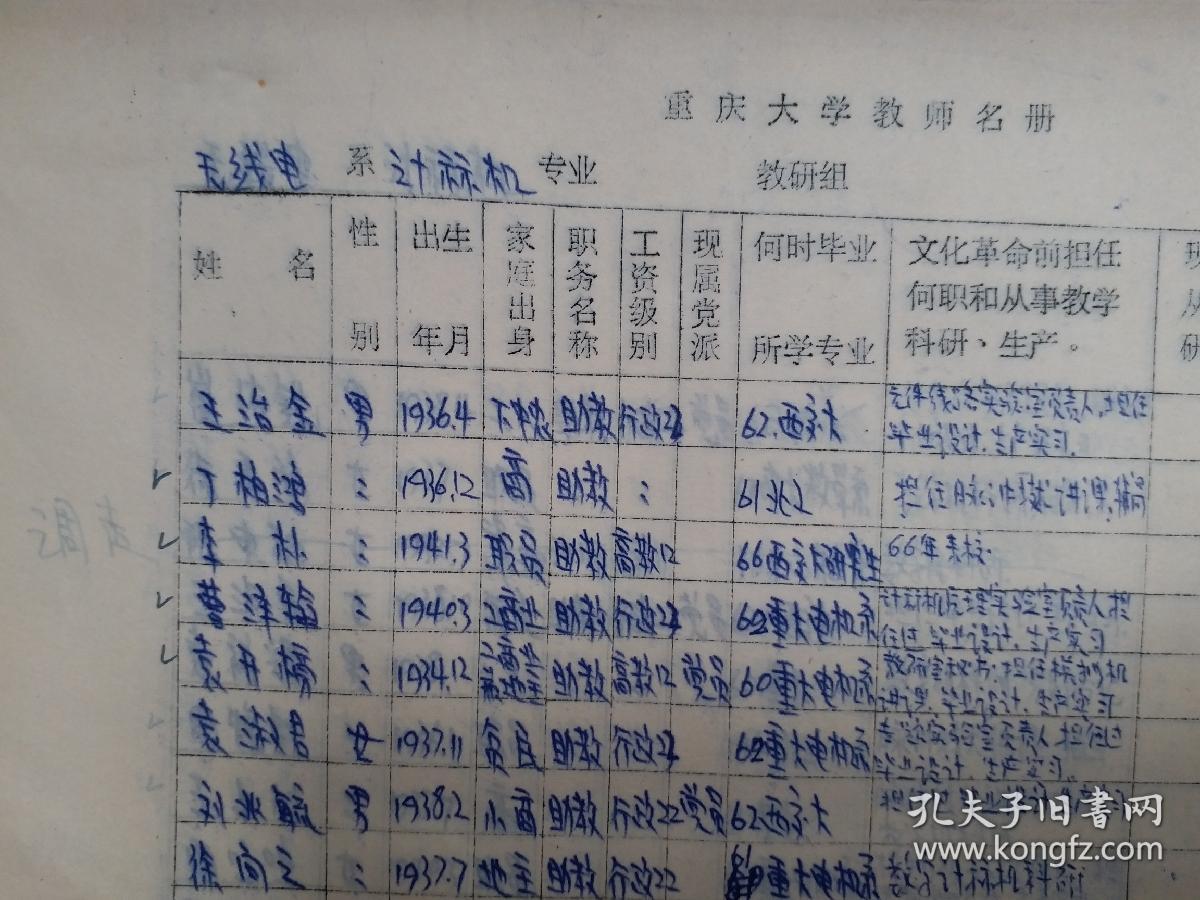 重庆大学教师名册
无线电 系 计标机 专业 教研组
姓名 性别 出生年月 家庭出身 职务名称 工资级别 现属党派 何时毕业所学专业 文化革命前担任何职和从事教学科研、生产。
王治金 男 1936.4 下中农 助教 行政 62.西交大 实验室负责人 担任毕业设计.生产实习.
丁柏鸿 〃 1936.12 商 助教 〃 61北 担任 讲课
调走
李朴 〃 1941.3 职员 助教 高教12 66西交大研究生 66年 来校.
曹泽 〃 1940.3 工商业 助教 行政 62重大电机系 计标机原理实验室负责人 担任过毕业设计.生产实习
袁开 〃 1934.12 助教 高教12 党员 60重大电机系 教研室秘书.担任模拟机讲课.毕业设计.生产实习
袁淑君 女 1937.11 贫民 助教 行政 62重大电机系 专 实验室负责人 担任过毕业设计.生产实习.
刘兆毓 男 1938.2 小商 助教 行政22 党员 62西交大
徐向之 〃 1937.7 地主 助教 行政22 重大电机系 数字计标机科研
孔夫子旧书网
www.kongfz.com